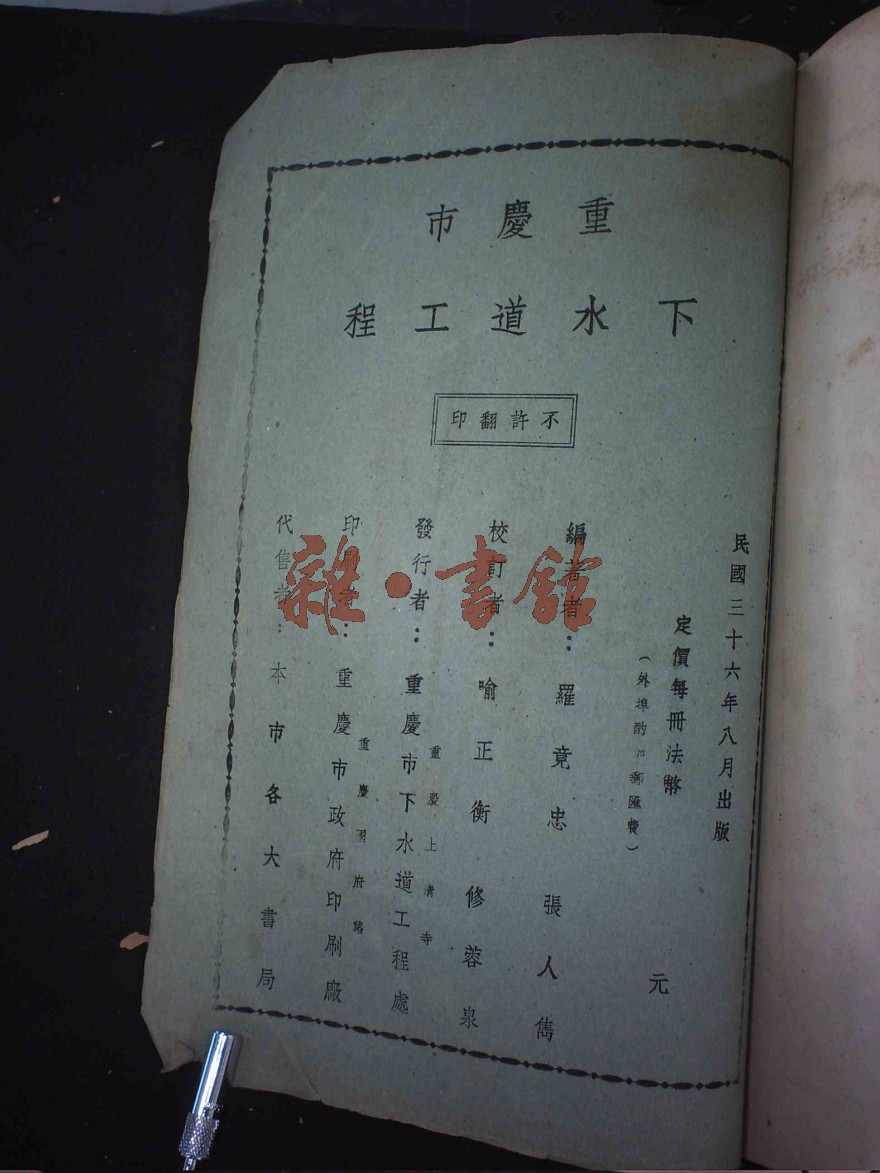 重慶市
下水道工程
不許翻印
民國三十六年八月出版
定價每冊法幣 元
（外埠酌加郵匯費）
編著者：羅竟忠 張人雋
校訂者：喻正衡 修蓉泉
發行者：重慶市下水道工程處
重慶上清寺
印刷者：重慶市政府印刷廠
重慶國府路
代售者：本市各大書局
雜·書館